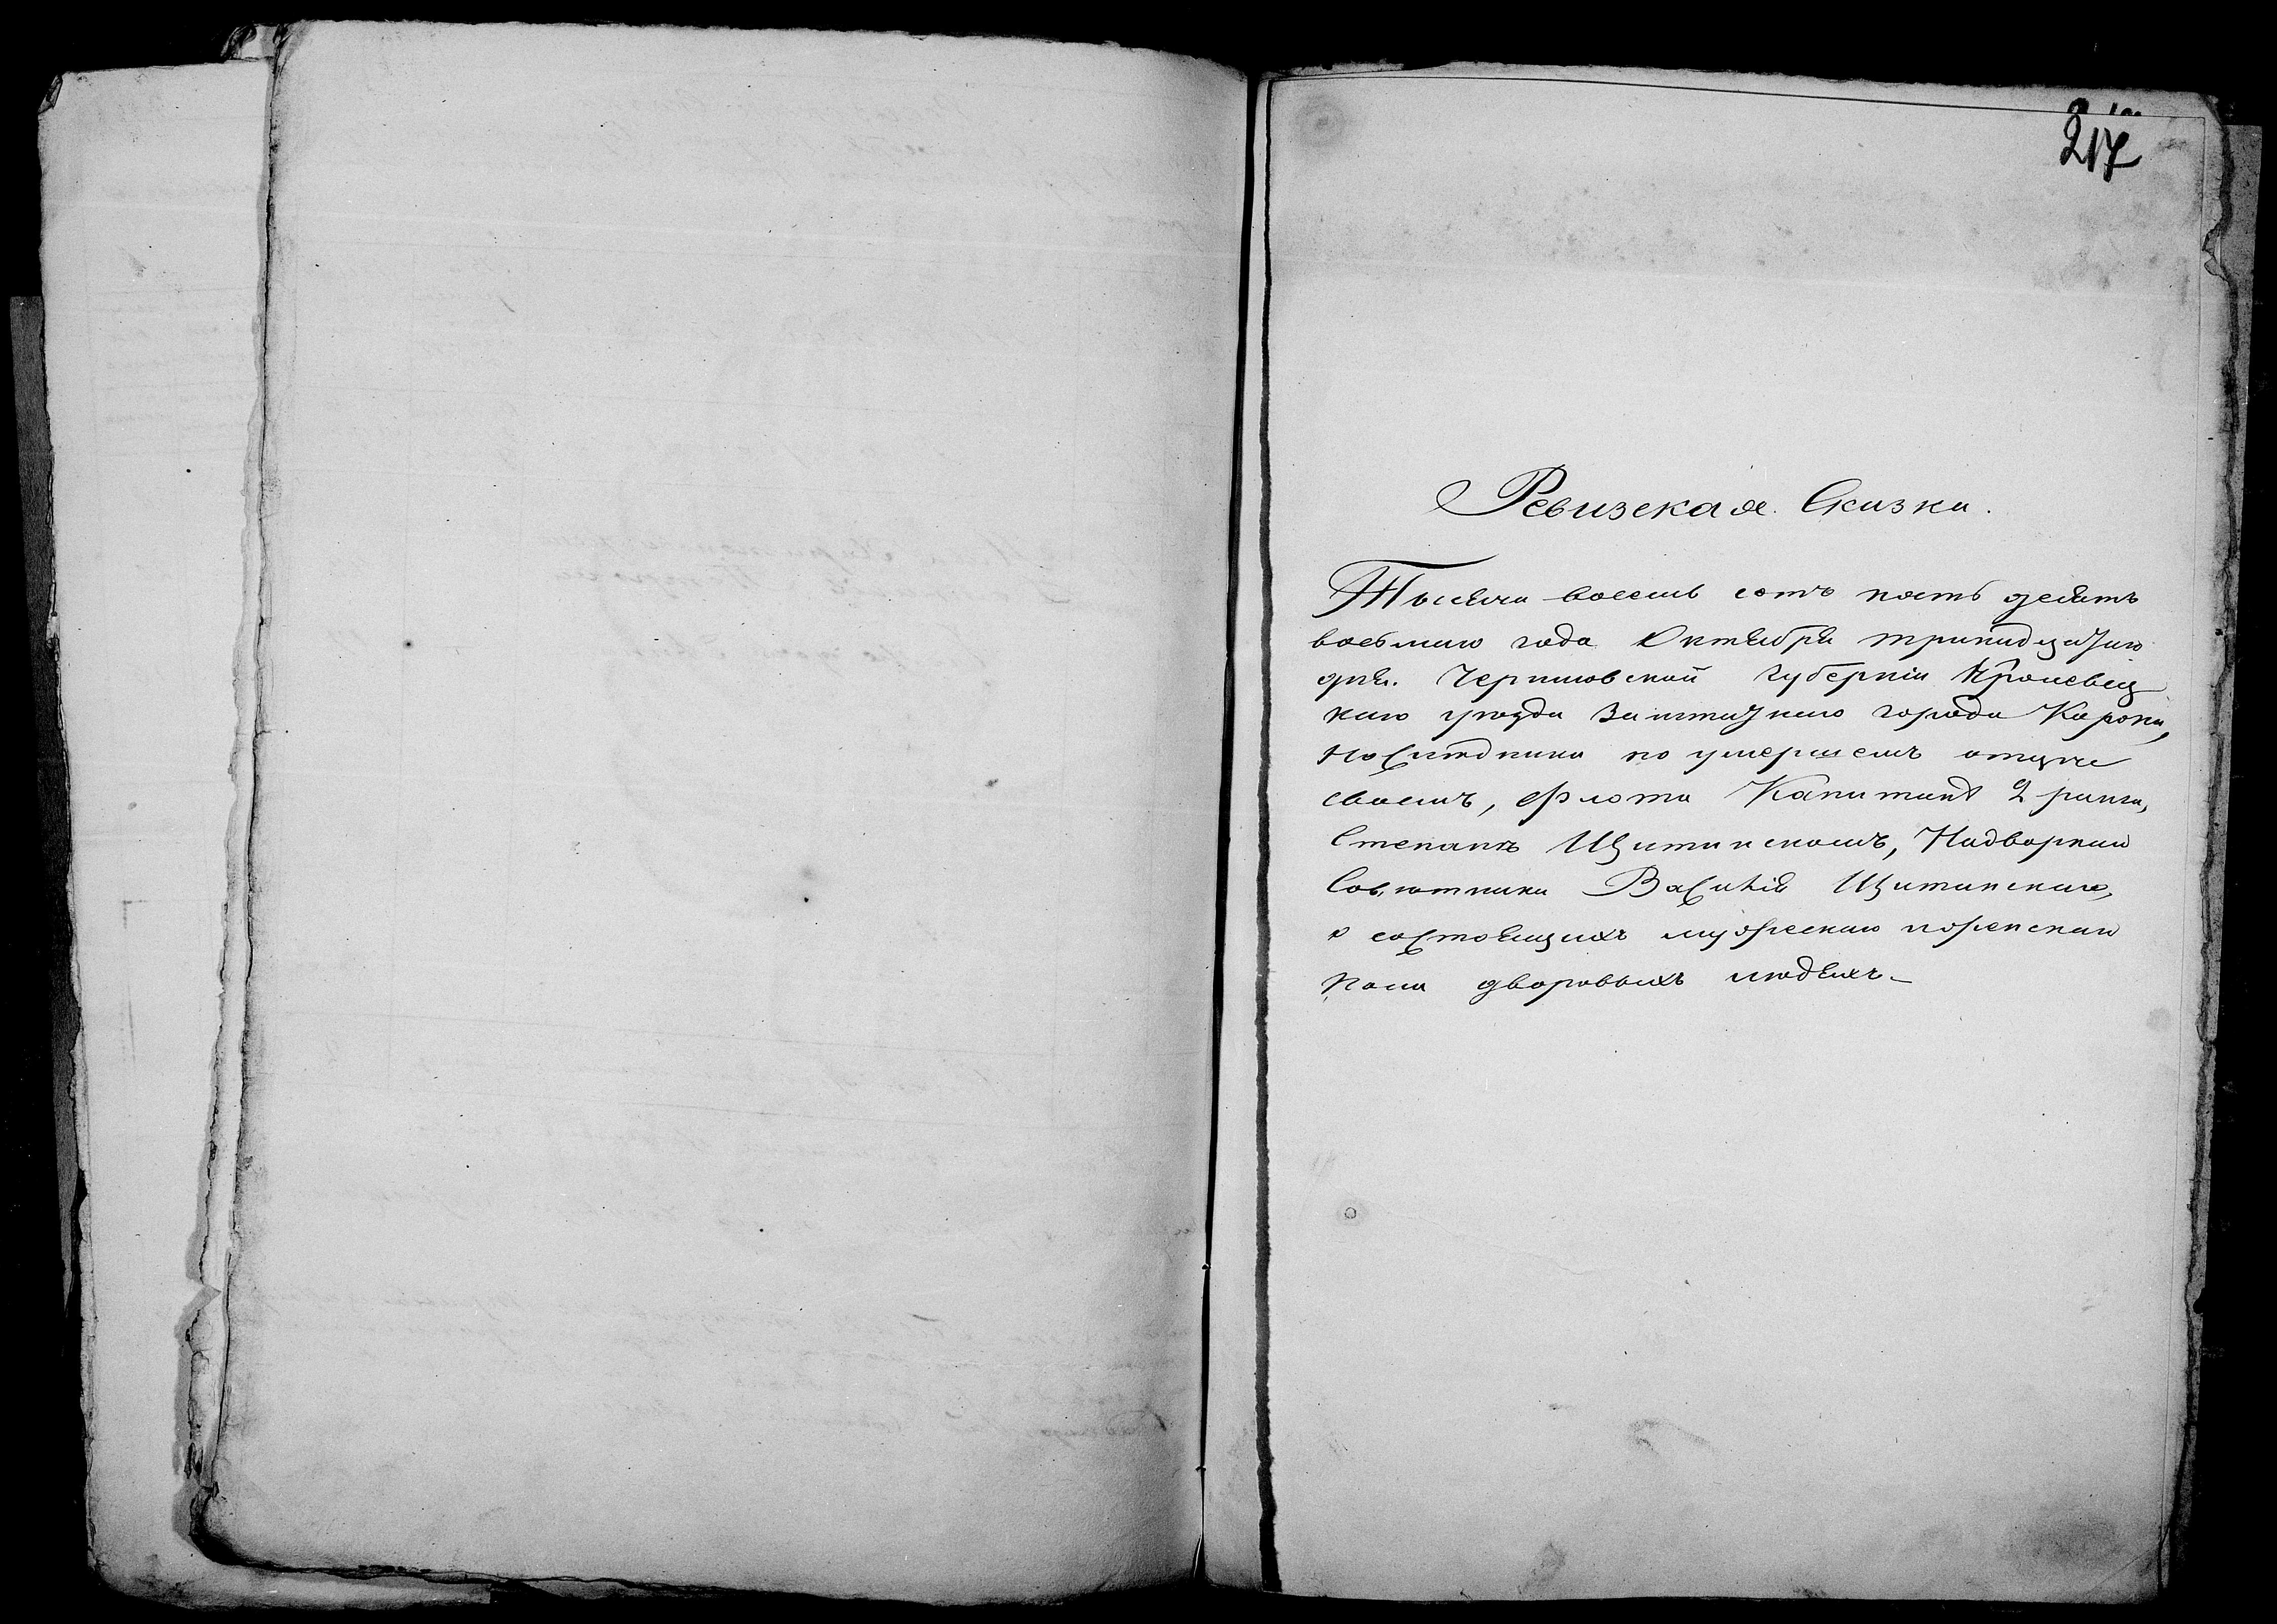 217
Ревизская Сказка.
Тысяча восемь сотъ пять десятъ
восьмаго года Октября тринадцатаго
дня. Черниговской губерніи Кролевец
каго уезда заштатнаго города Коропа,
Наследника по умершемъ отцѣ
своемъ, флота Капитанѣ 2 ранга,
Степанѣ Щитинскомъ, Надворнаго
Совѣтника Василія Щитинскаго,
о состоящихъ мужескаго и женскаго
пола дворовыхъ людяхъ